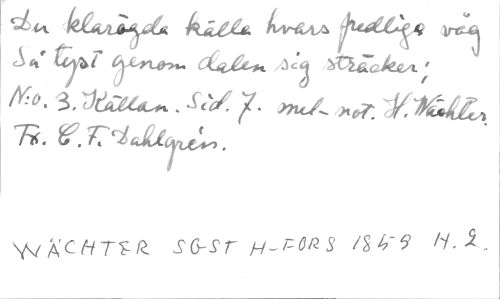 Du klarögda källa hvars fredliga väg
Så tyst genom dalen sig sträcker;
N:o. 3. Källan. Sid. 7. mel- not. H. Wächter.
Tx. C. F. Dahlgrén.
WÄCHTER SGST H-FORS 1859 H. 2.